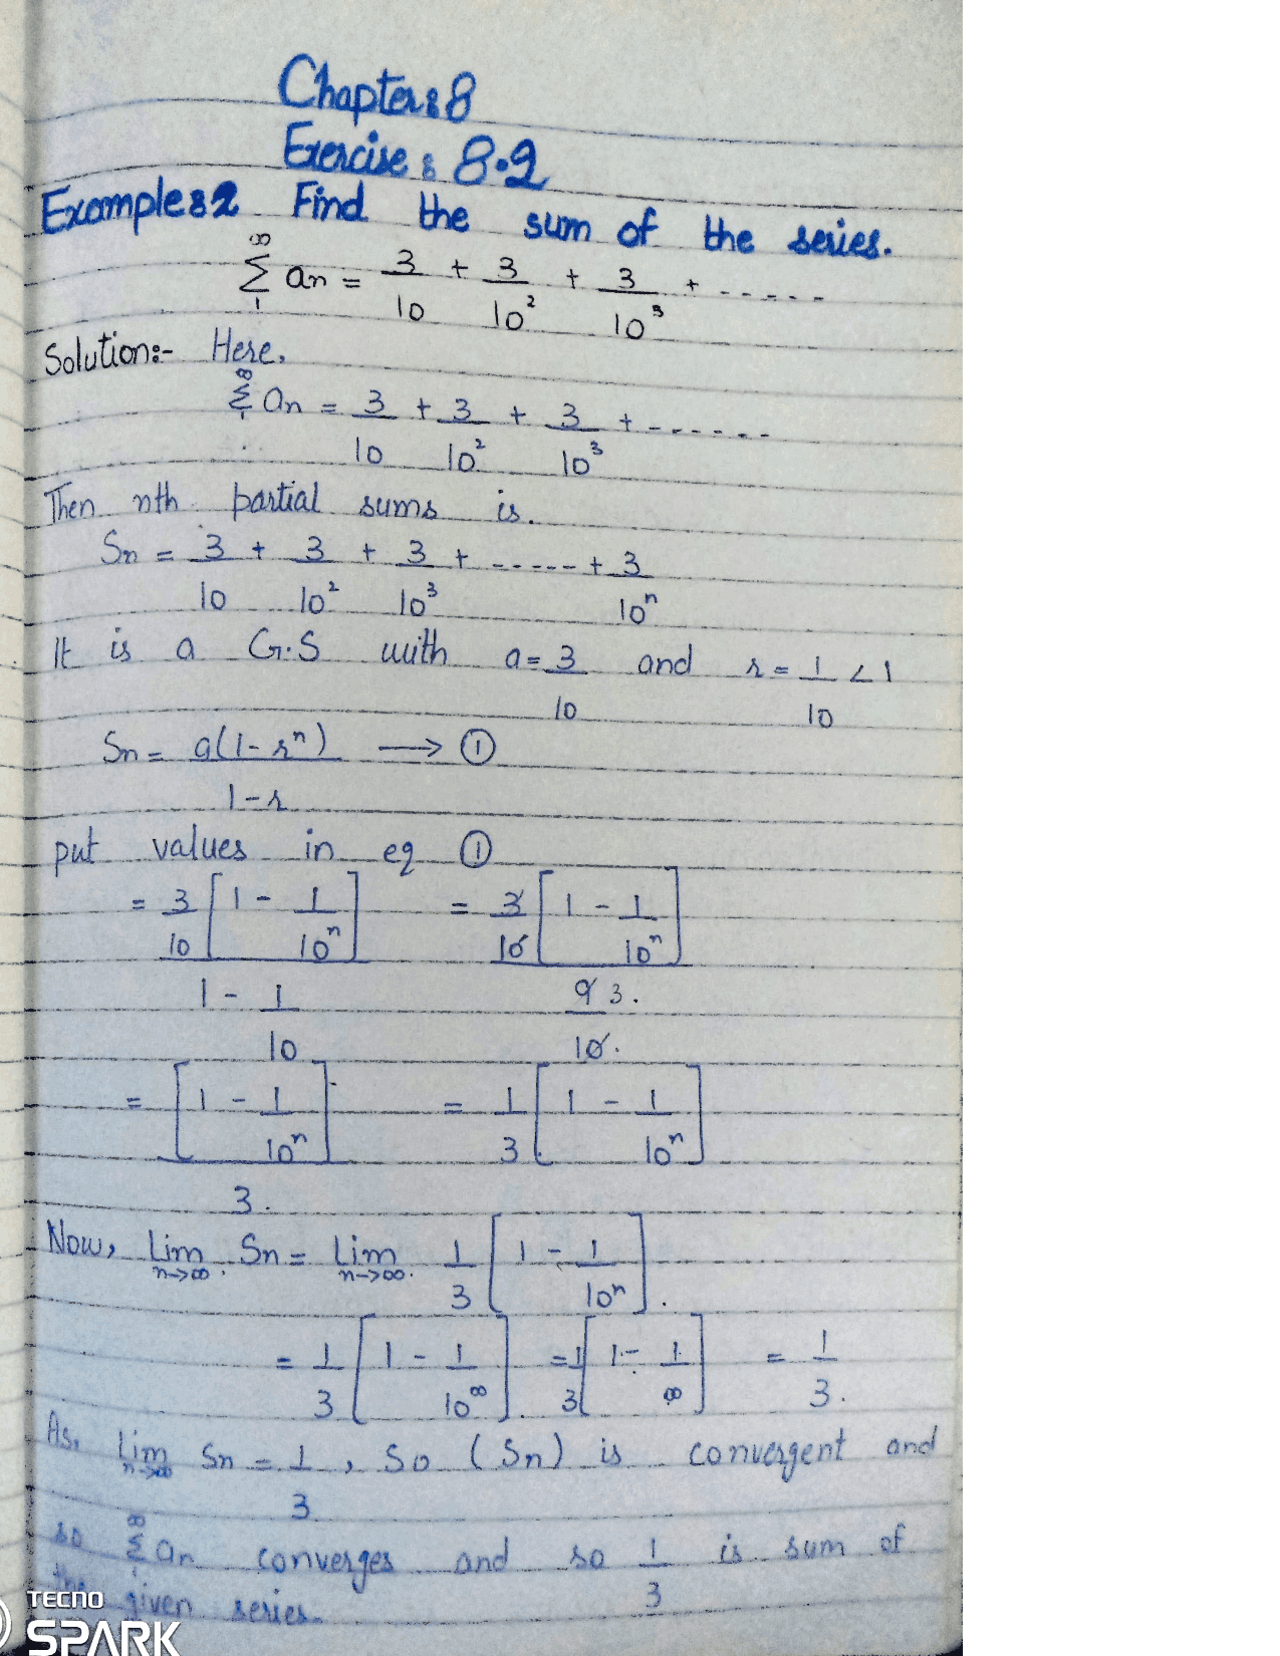 Chapter:8
Exercise: 8.2
Example:2 Find the sum of the series.
∞∑1 an = 3/10 + 3/10² + 3/10³ + - - - - -
Solution:- Here,
∞∑1 an = 3/10 + 3/10² + 3/10³ + - - - - - -
Then nth partial sums is.
Sn = 3/10 + 3/10² + 3/10³ + - - - - - + 3/10ⁿ
It is a G.S with a = 3/10 and r = 1/10 < 1
Sn = a(1-rⁿ)/1-r → ①
put values in eq ①
= 3/10 [1 - 1/10ⁿ] / 1 - 1/10 = 3/10 [1 - 1/10ⁿ] / 9/10 3.
= [1 - 1/10ⁿ] / 3. = 1/3 [1 - 1/10ⁿ]
Now, Lim n→∞. Sn = Lim n→∞. 1/3 [1 - 1/10ⁿ].
= 1/3 [1 - 1/10^∞]. = 1/3 [1 - 1/∞] = 1/3.
As, Lim n→∞ Sn = 1/3, So (Sn) is convergent and
so ∞∑1 an converges and so 1/3 is sum of
the given series.
TECNO
SPARK